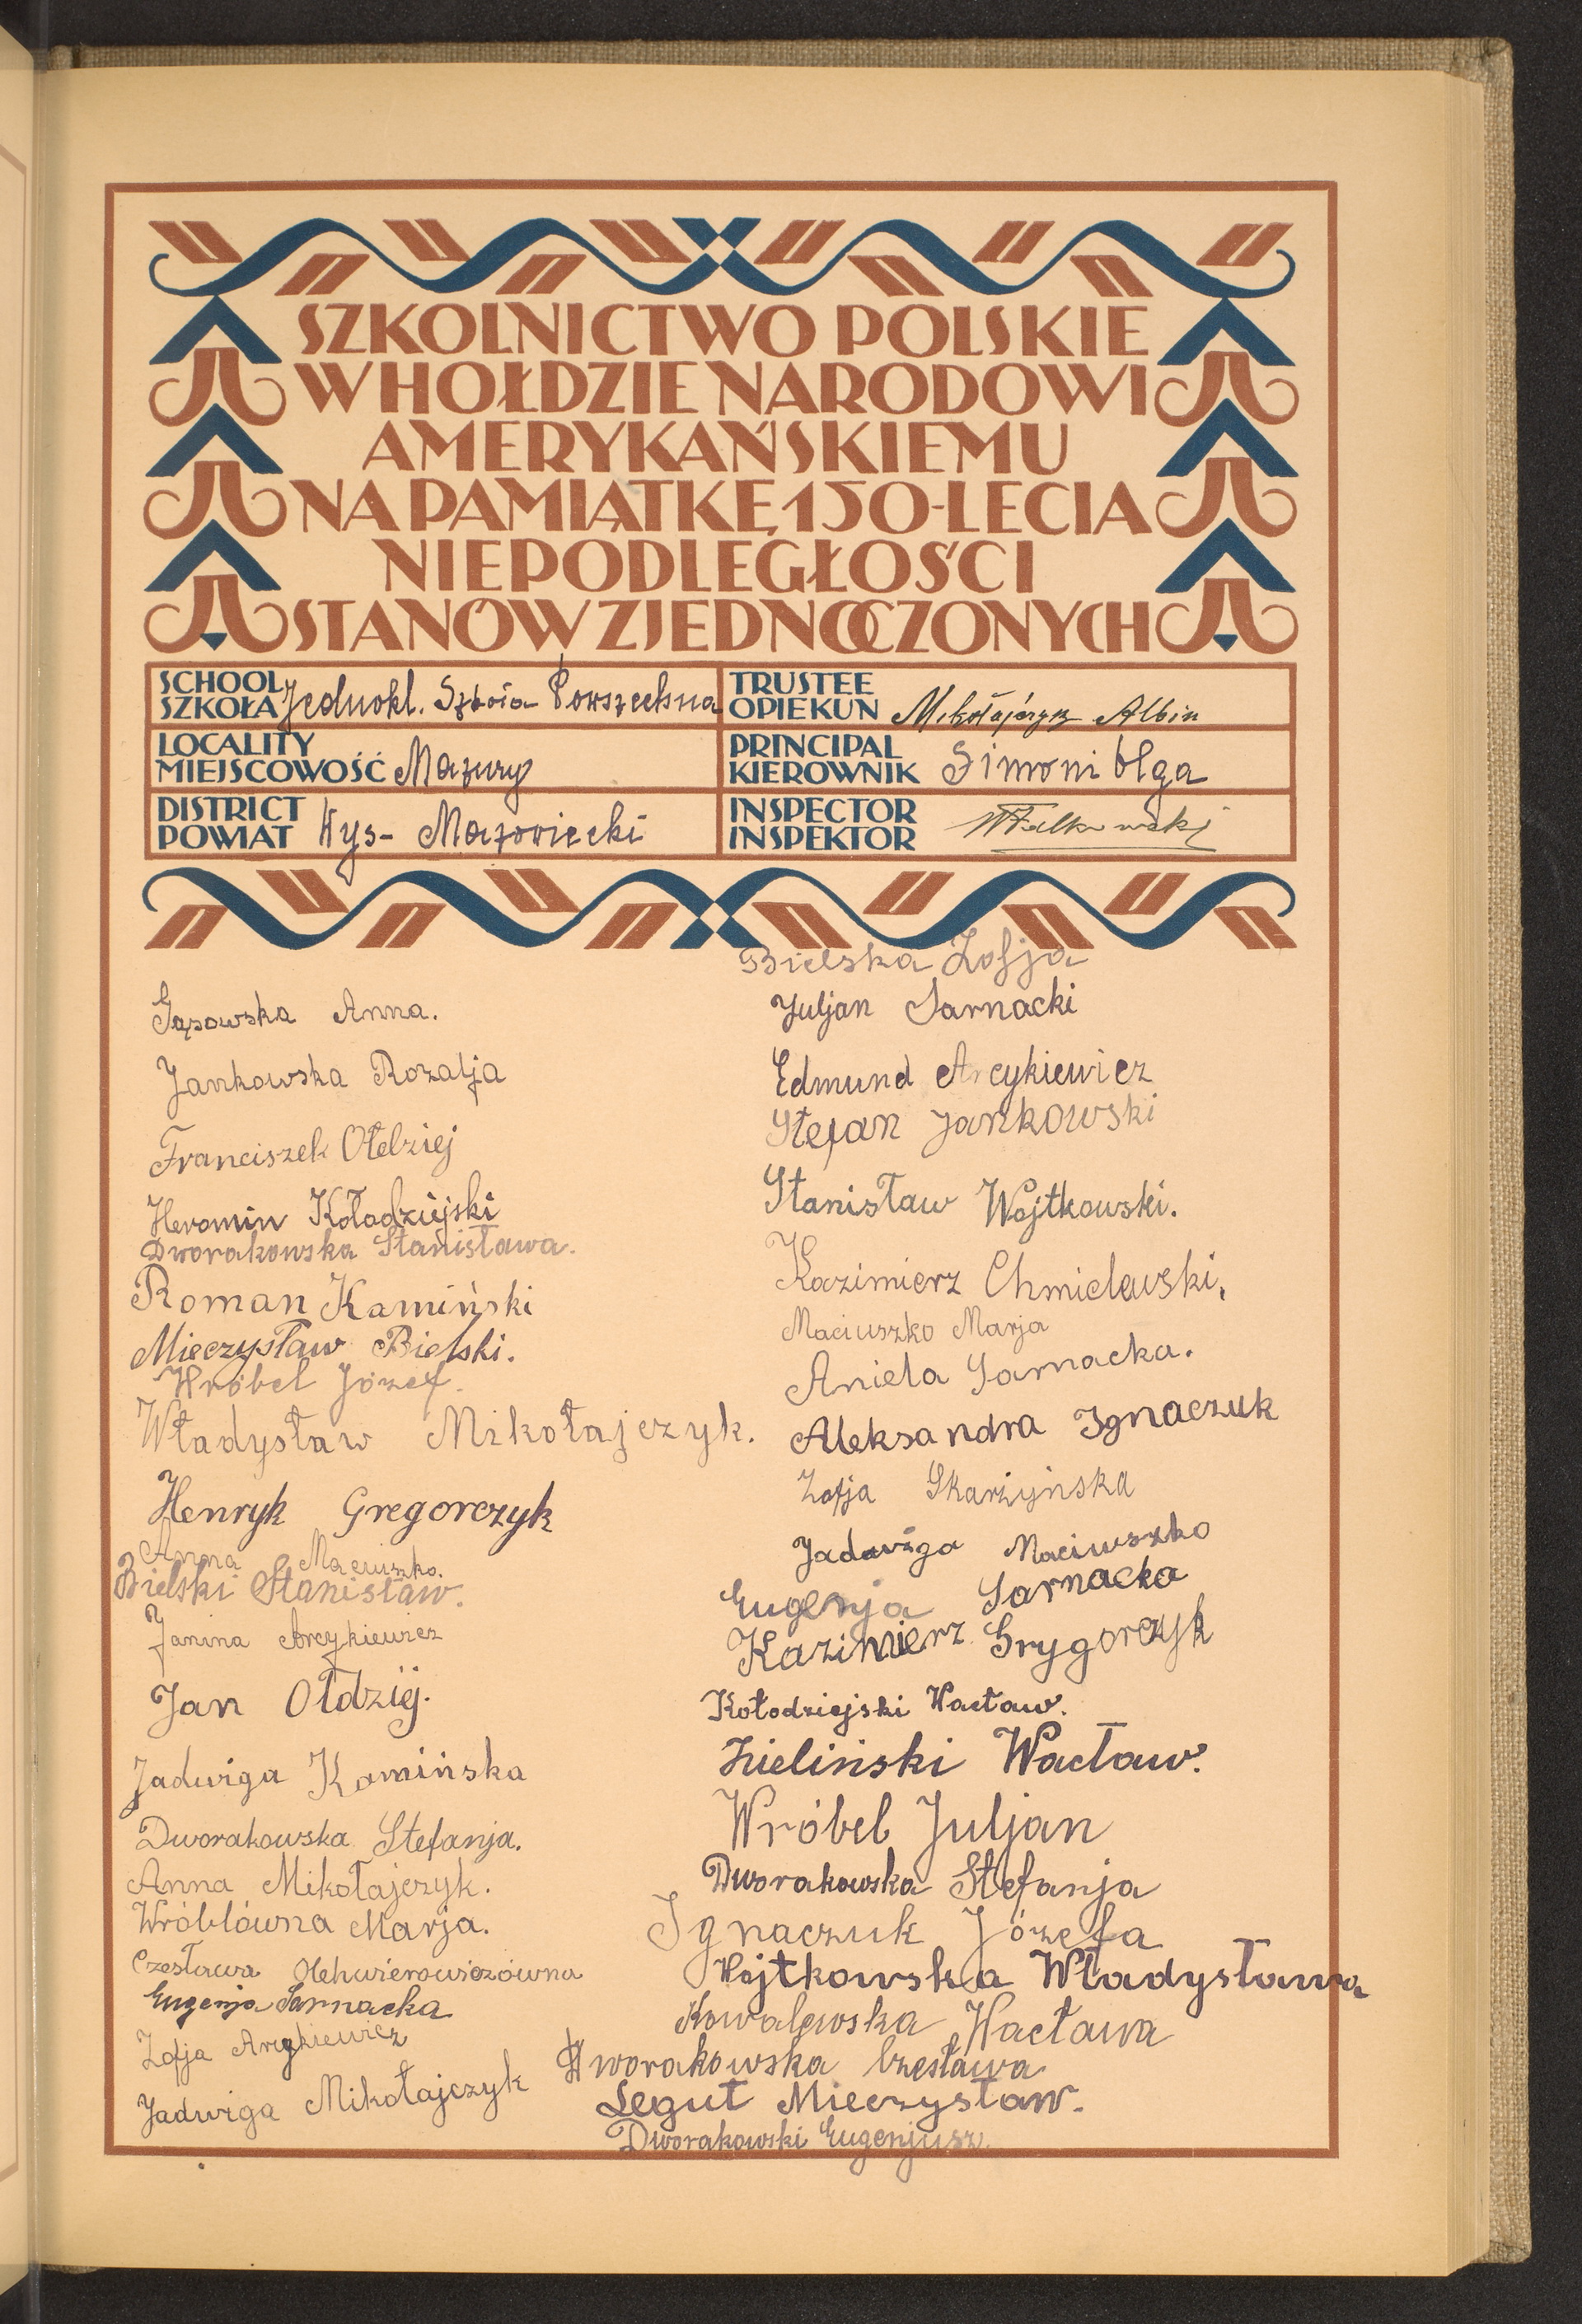 SZKOLNICTWO POLSKIE
W HOŁDZIE NARODOWI
AMERYKAŃSKIEMU
NA PAMIĄTKĘ 150-LECIA
NIEPODLEGŁOŚCI
STANÓW ZJEDNOCZONYCH
SCHOOL
SZKOŁA Jednokl. Szkoła Powszechna
TRUSTEE
OPIEKUN Mikołajczyk Albin
LOCALITY
MIEJSCOWOŚĆ Mazury
PRINCIPAL
KIEROWNIK Simoni Olga
DISTRICT
POWIAT Wys- Mazowiecki
INSPECTOR
INSPEKTOR
Gąsowska Anna.
Jankowska Rozalja
Franciszek Ołdziej
Heromin Kołodziejski
Dworakowska Stanisława.
Roman Kamiński
Mieczysław Bielski.
Wróbel Józef.
Władysław Mikołajczyk.
Henryk Gregorczyk
Anna Maciuszko.
Bielski Stanisław.
Janina Arcykiewicz
Jan Ołdziej.
Jadwiga Kamińska
Dworakowska Stefanja.
Anna Mikołajczyk.
Wróblówna Marja.
Czesława
Eugenja Sarnacka
Zofja Arcykiewicz
Jadwiga Mikołajczyk
Bielska Zofja
Juljan Sarnacki
Edmund Arcykiewicz
Stefan Jankowski
Stanisław Wojtkowski.
Kazimierz Chmielewski.
Maciuszko Marja
Aniela Sarnacka.
Aleksandra Ignaczuk
Zofja Skarżyńska
Jadwiga Maciuszko
Eugenja Sarnacka
Kazimierz Grygorczyk
Kołodziejski Wacław.
Zieliński Wacław.
Wróbel Juljan
Dworakowska Stefanja
Ignaczuk Józefa
Wojtkowska Władysława
Kowalewska Wacława
Dworakowska Czesława
Legut Mieczysław.
Dworakowski Eugenjusz.